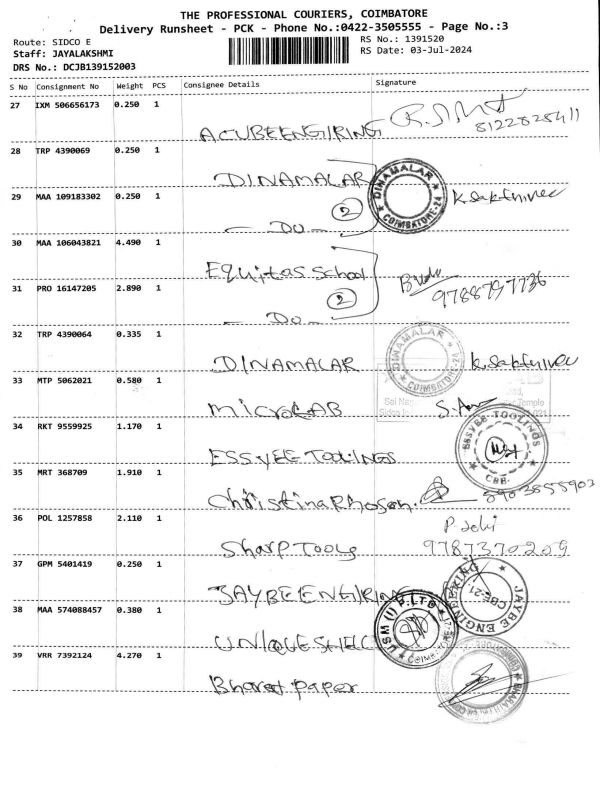 THE PROFESSIONAL COURIERS, COIMBATORE
Delivery Runsheet - PCK - Phone No.:0422-3505555 - Page No.:3
Route: SIDCO E
RS No.: 1391520
Staff: JAYALAKSHMI
RS Date: 03-Jul-2024
DRS No.: DCJB139152003
S No Consignment No Weight PCS Consignee Details Signature
27 IXM 506656173 0.250 1
ACUBEENGIRING
8122825411
28 TRP 4390069 0.250 1
DINAMALAR
DINAMALAR
COIMBATORE-24
K.Sakthivel
29 MAA 109183302 0.250 1
2
Do
30 MAA 106043821 4.490 1
Equitas School
31 PRO 16147205 2.890 1
2
9788797736
Do
32 TRP 4390064 0.335 1
DINAMALAR
DINAMALAR
K.Sakthivel
33 MTP 5062021 0.580 1
microLAB
Temple
34 RKT 9559925 1.170 1
ESSVEE TOOLINGS
ESSVEE TOOLINGS
CBE.
35 MRT 368709 1.910 1
Christina Rhoson.
8903855903
36 POL 1257858 2.110 1
Sharp Tools
9787370209
37 GPM 5401419 0.250 1
JAYBEE ENGIRING
JAYBE ENGINEERING
CBE-21
38 MAA 574088457 0.380 1
UNIQUE SHELL
USM (I) P.LTD
39 VRR 7392124 4.270 1
Bharat paper